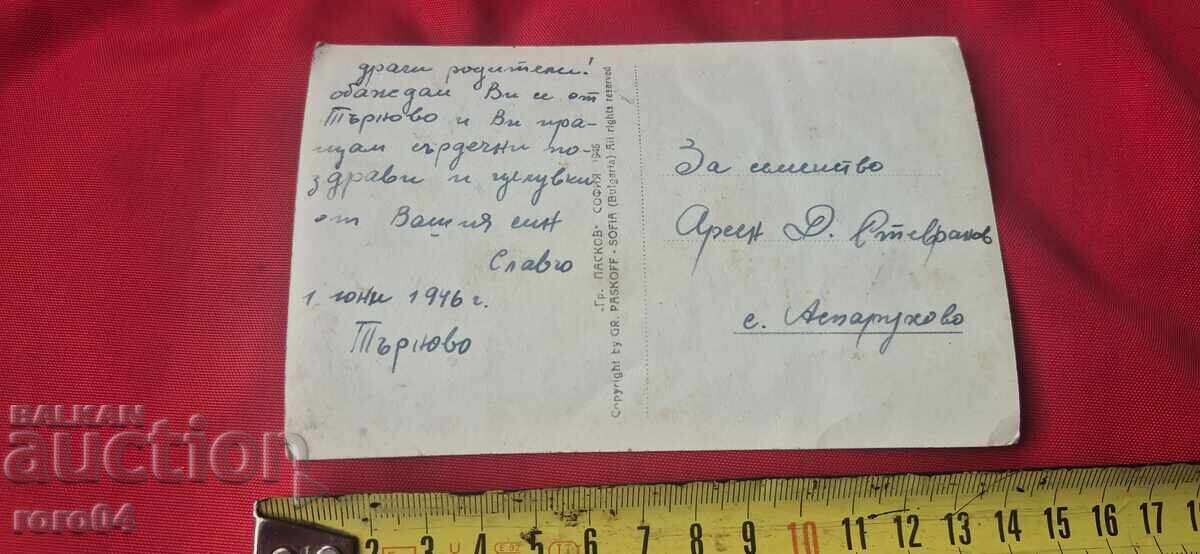 драги родители!
обаждам Ви се от
Търново и Ви пра-
щам сърдечни по-
здрави и целувки
от Вашия син
Славчо
1. юни 1946 г.
Търново
"Гр. ПАСКОВ" - СОФИЯ 1946
Copyright by GR. PASKOFF - SOFIA (Bulgaria) All rights reserved
За семейство
Арсен Д.
с. Аспарухово
BALKAN
auction
roro64
2 3 4 5 6 7 8 9 10 11 12 13 14 15 16 17 18